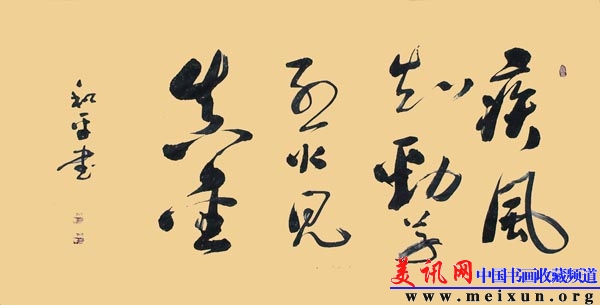 疾風
知勁草
烈火見
真金
和平書
美讯网 中国书画收藏频道
www.meixun.org